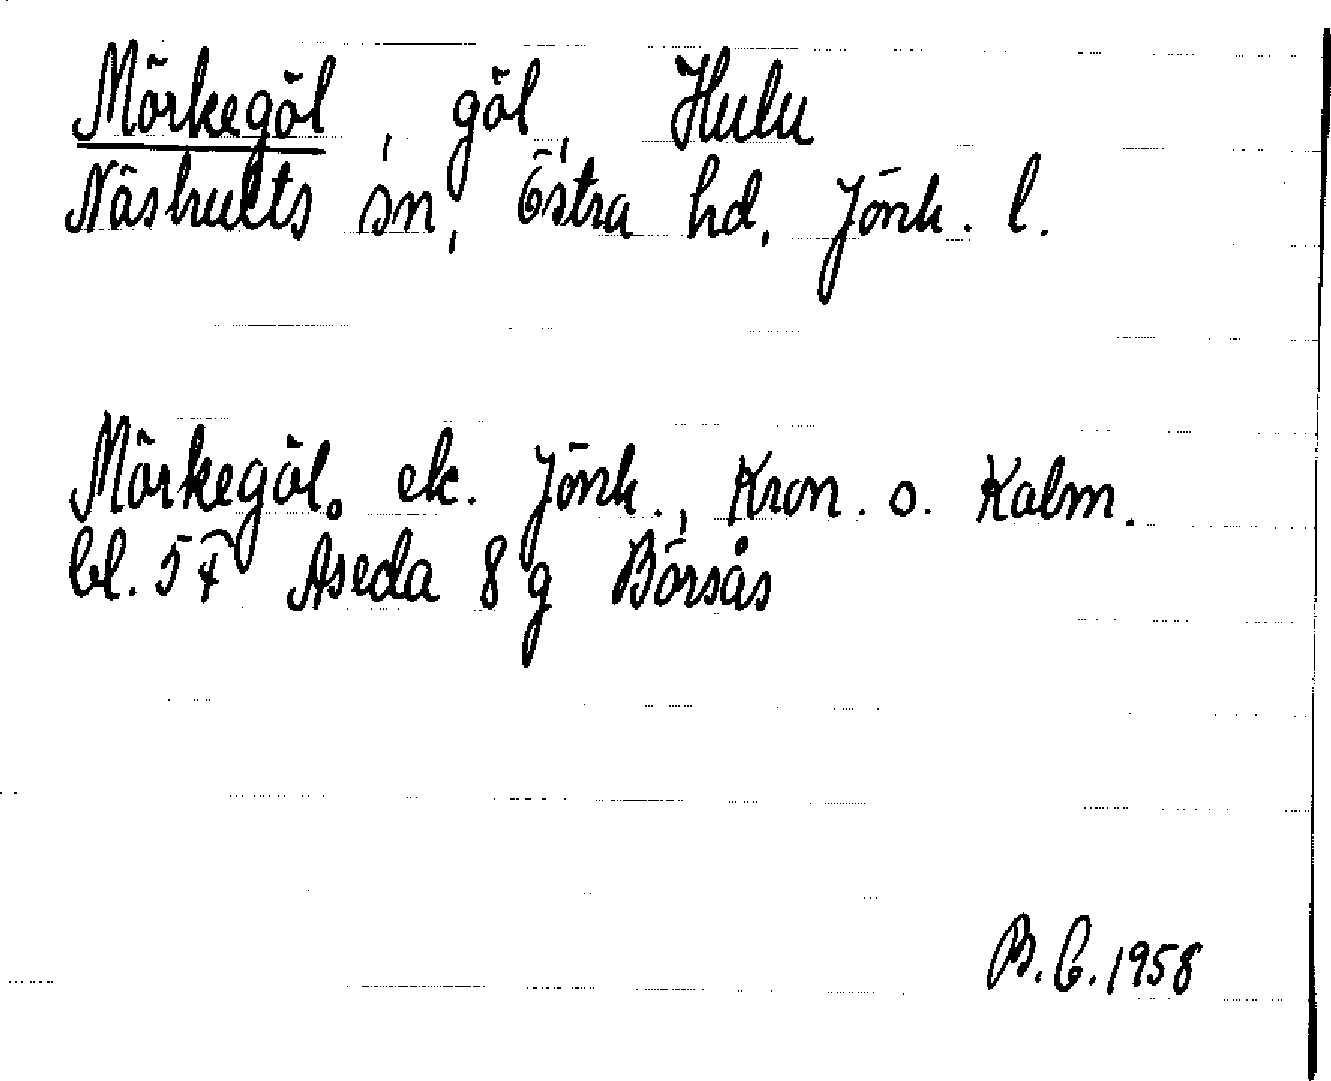 Mörkegöl, göl, Hulu
Näshults sn, Östra hd, Jönk. l.
Mörkegöl. ek. Jönk., Kron. o. Kalm.
bl. 57 Åseda 8 g Börsås
B. C. 1958